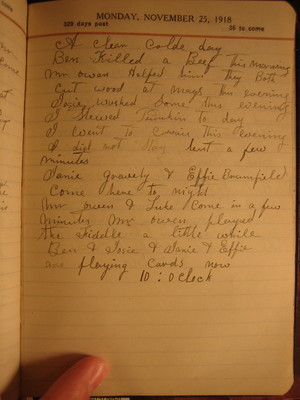 MONDAY, NOVEMBER 25, 1918
329 days past 36 to come
A clear Colde day
Ben Killed a Beef this Morning
Mr owen Helped him they Both
Cut wood at Mays this evening
Josie washed Some this evening
I Stewed Pumkin to day
I went to this evening
I did not Stay but a few
minutes
Janie Gravely & Effie Brumfield
Come here to night
Mr owen & Luke Come in a few
Minutes Mr owen played
the fiddle a little while
Ben & Josie & Janie & Effie
are playing Cards now
10 : O clock